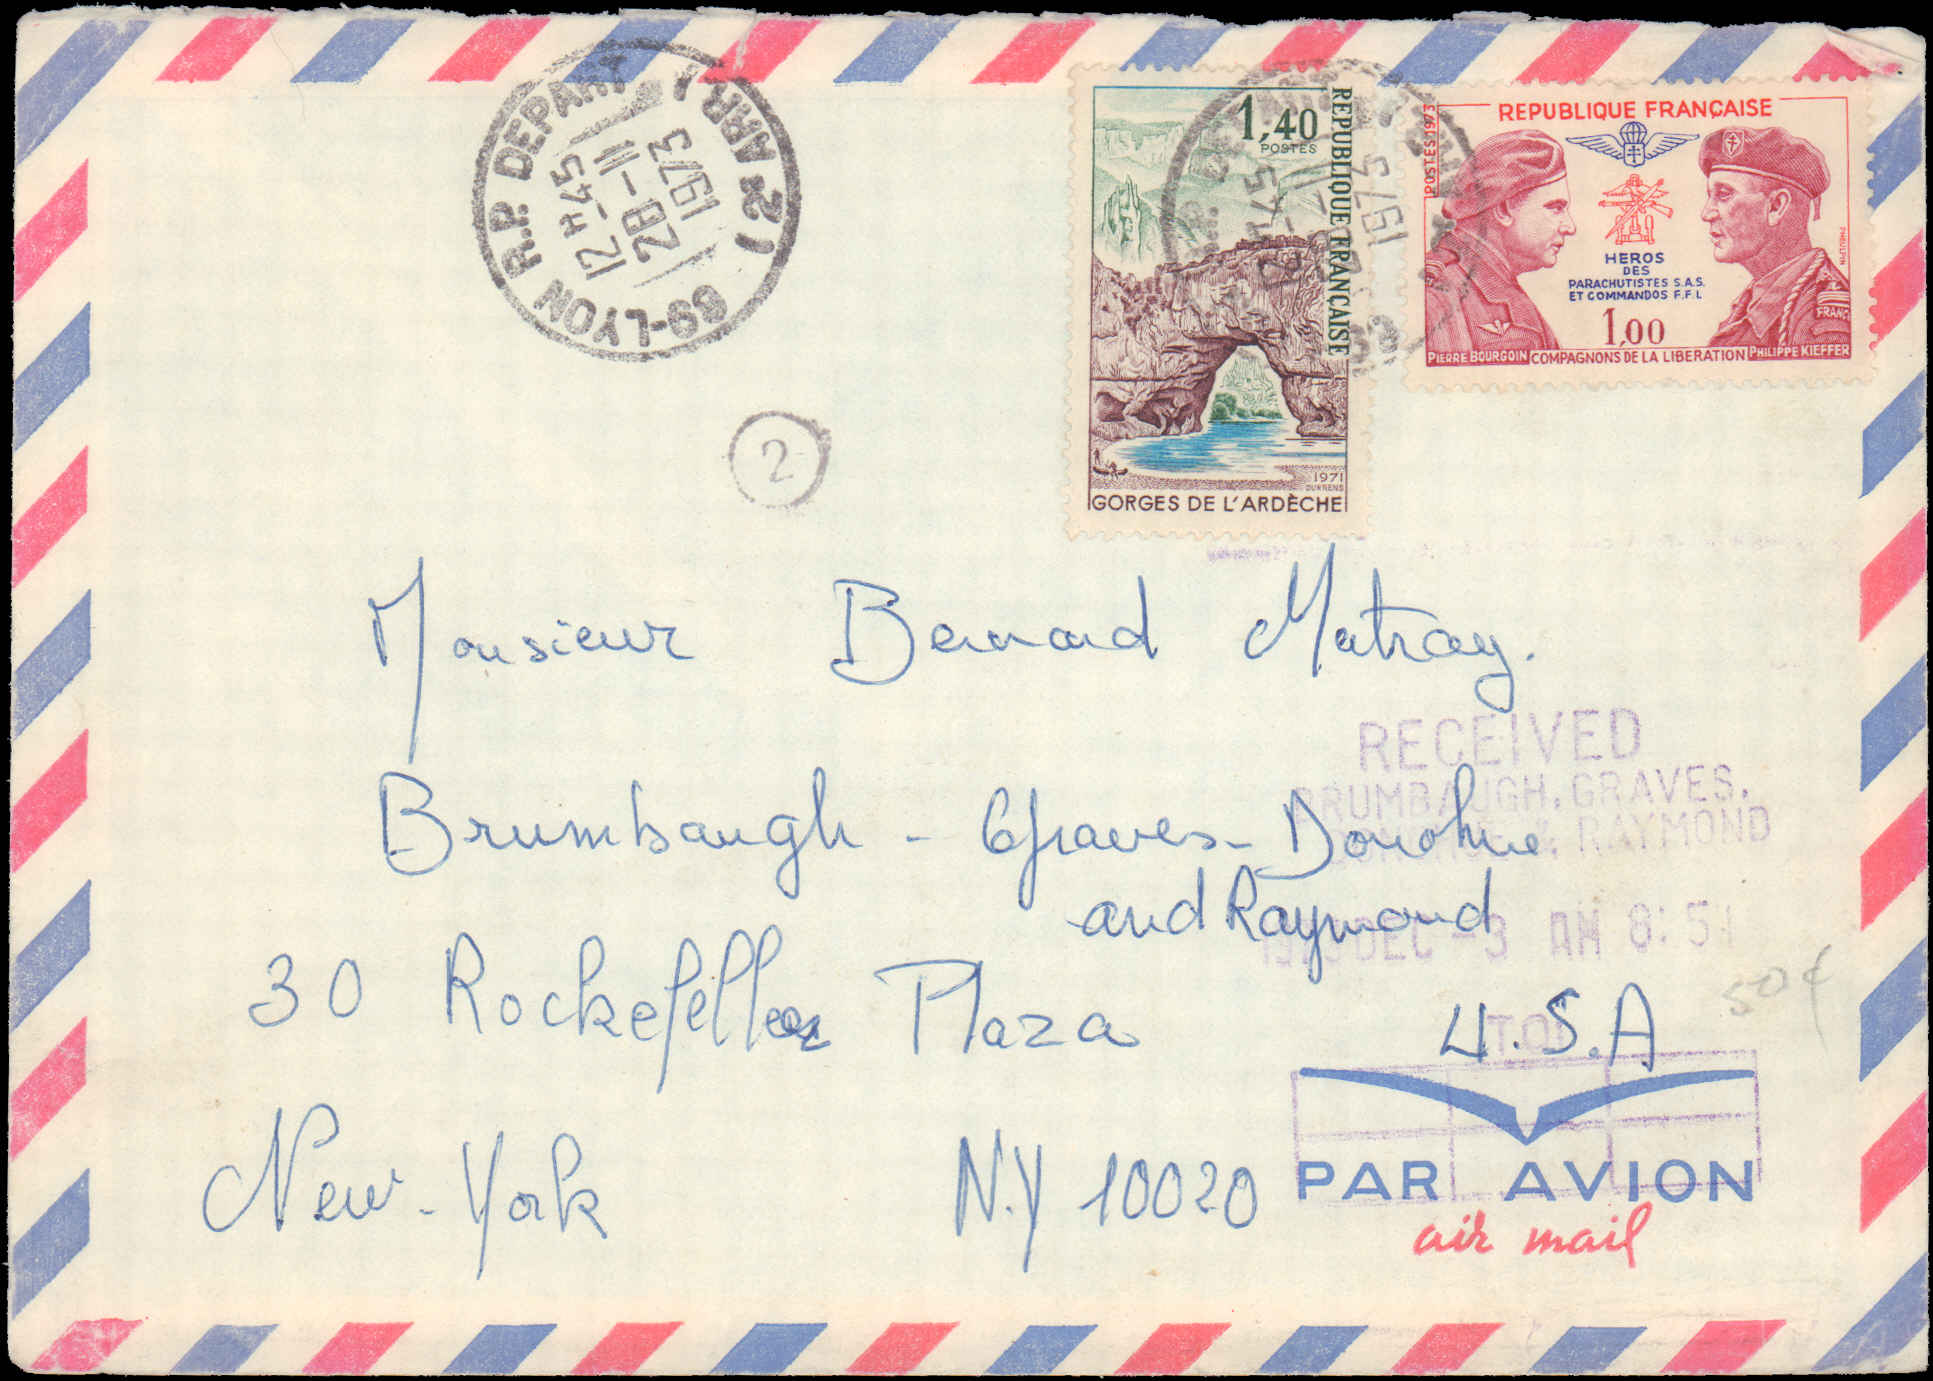 69-LYON R.P. DEPART (2e ARR.)
12H45
28-11
1973
2
1,40
POSTES
REPUBLIQUE FRANÇAISE
1971
DURRENS
GORGES DE L'ARDÈCHE
POSTES 1973
REPUBLIQUE FRANÇAISE
HEROS
DES
PARACHUTISTES S.A.S.
ET COMMANDOS F.F.L
1,00
FRANC
PHEULPIN
PIERRE BOURGOIN COMPAGNONS DE LA LIBERATION PHILIPPE KIEFFER
Monsieur Bernard Matray.
RECEIVED
BRUMBAUGH, GRAVES,
& RAYMOND
DEC -3 AM 8:51
Brumbaugh - Graves - Donohue
and Raymond
30 Rockefeller Plaza U.S.A
50¢
New-York N.Y 10020
PAR AVION
air mail